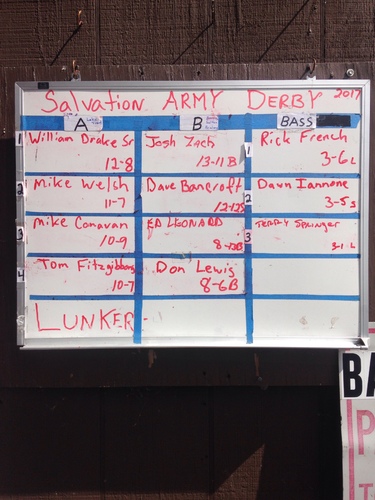 Salvation ARMY DERBY 2017
A B BASS
1 William Drake Sr Josh Zach 1 Rick French
12-8 13-11B 3-6L
2 Mike Welsh Dave Bancroft 2 Dawn Iannone
11-7 3-5s
3 Mike Canavan ED LEONARD 3 TERRY SPRINGER
10-9 3-1-L
4 Tom Fitzgibbons Don Lewis
10-7 8-6B
LUNKER-
BA
P